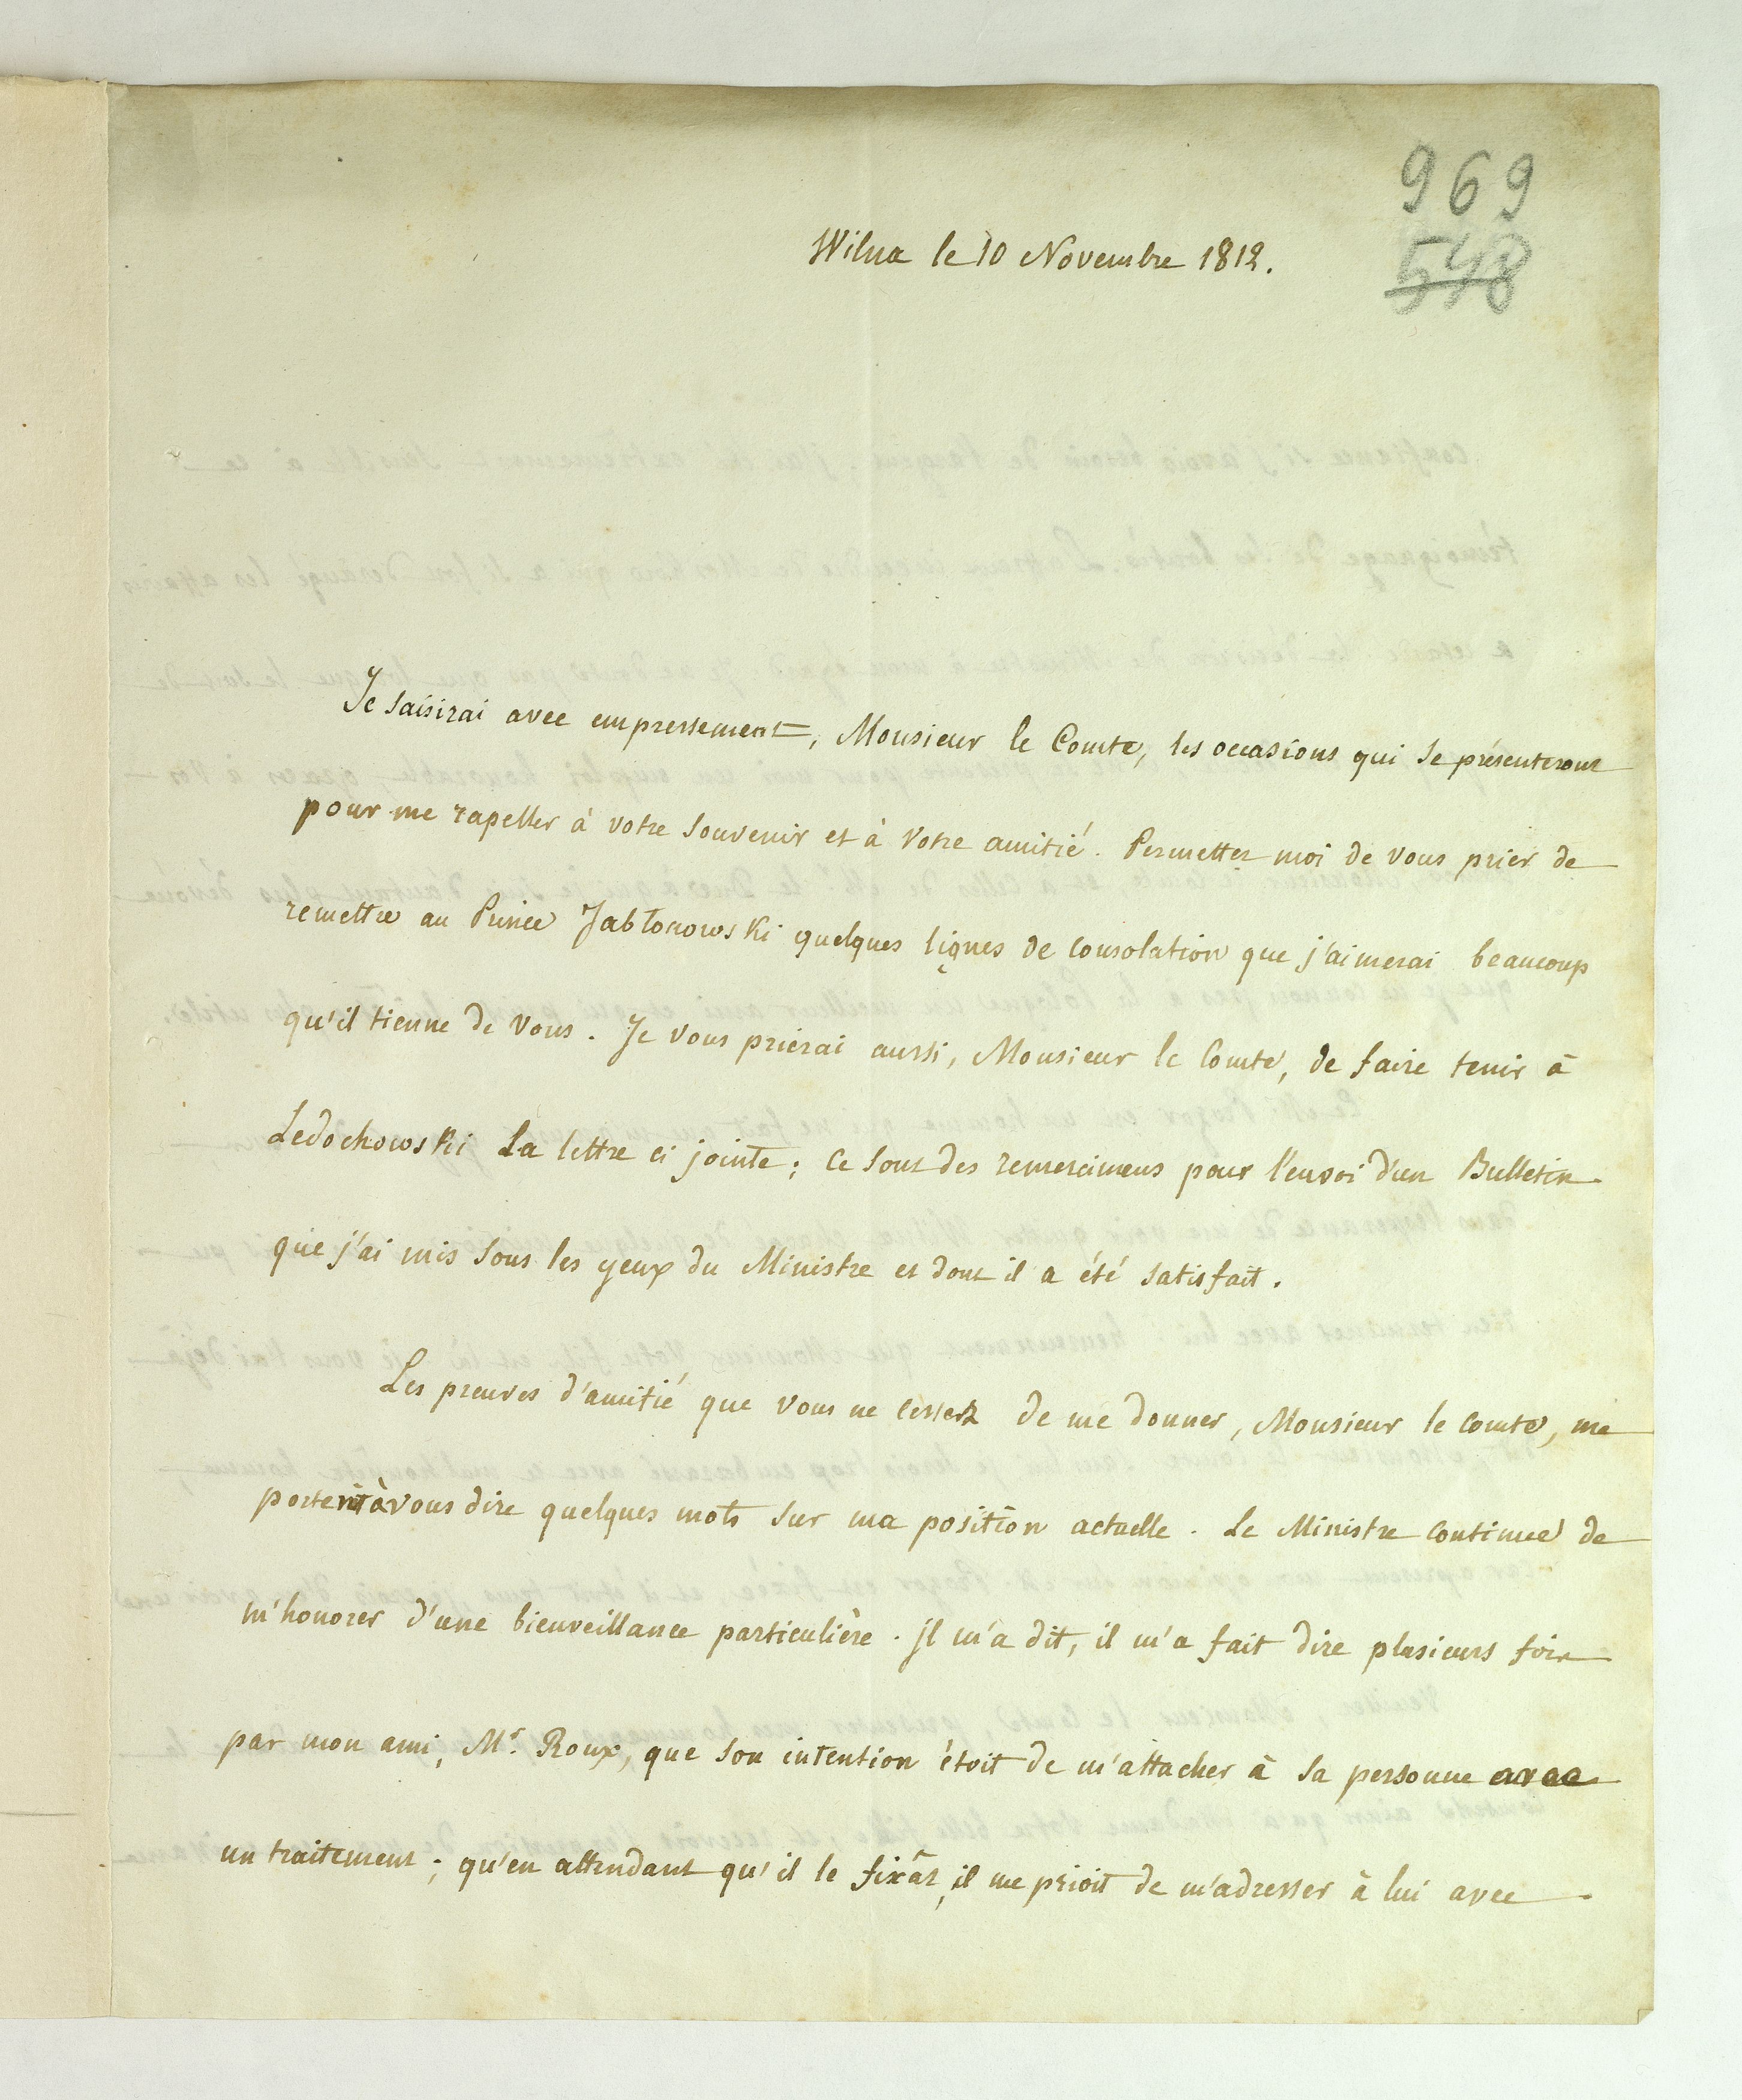 969
548
Wilna le 10 Novembre 1812.
Je saisirai avec empressement, Monsieur le Comte, les occasions qui se présenteront
pour me rapeller à votre souvenir et à votre amitié. Permettez moi de vous prier de
remettre au Prince Jabłonowski quelques lignes de consolation que j'aimerai beaucoup
qu'il tienne de vous. Je vous prierai aussi, Monsieur le Comte, de faire tenir à
Ledochowski la lettre ci jointe; ce sont des remercimens pour l'envoi d'un Bulletin
que j'ai mis sous les yeux du Ministre et dont il a été satisfait.
Les preuves d'amitié que vous ne cessez de me donner, Monsieur le Comte, me
portent à vous dire quelques mots sur ma position actuelle. Le Ministre continue de
m'honorer d'une bienveillance particulière. Il m'a dit, il m'a fait dire plusieurs fois
par mon ami, Mr. Roux, que son intention étoit de m'attacher à sa personne avec
un traitement; qu'en attendant qu'il le fixât, il me prioit de m'adresser à lui avec